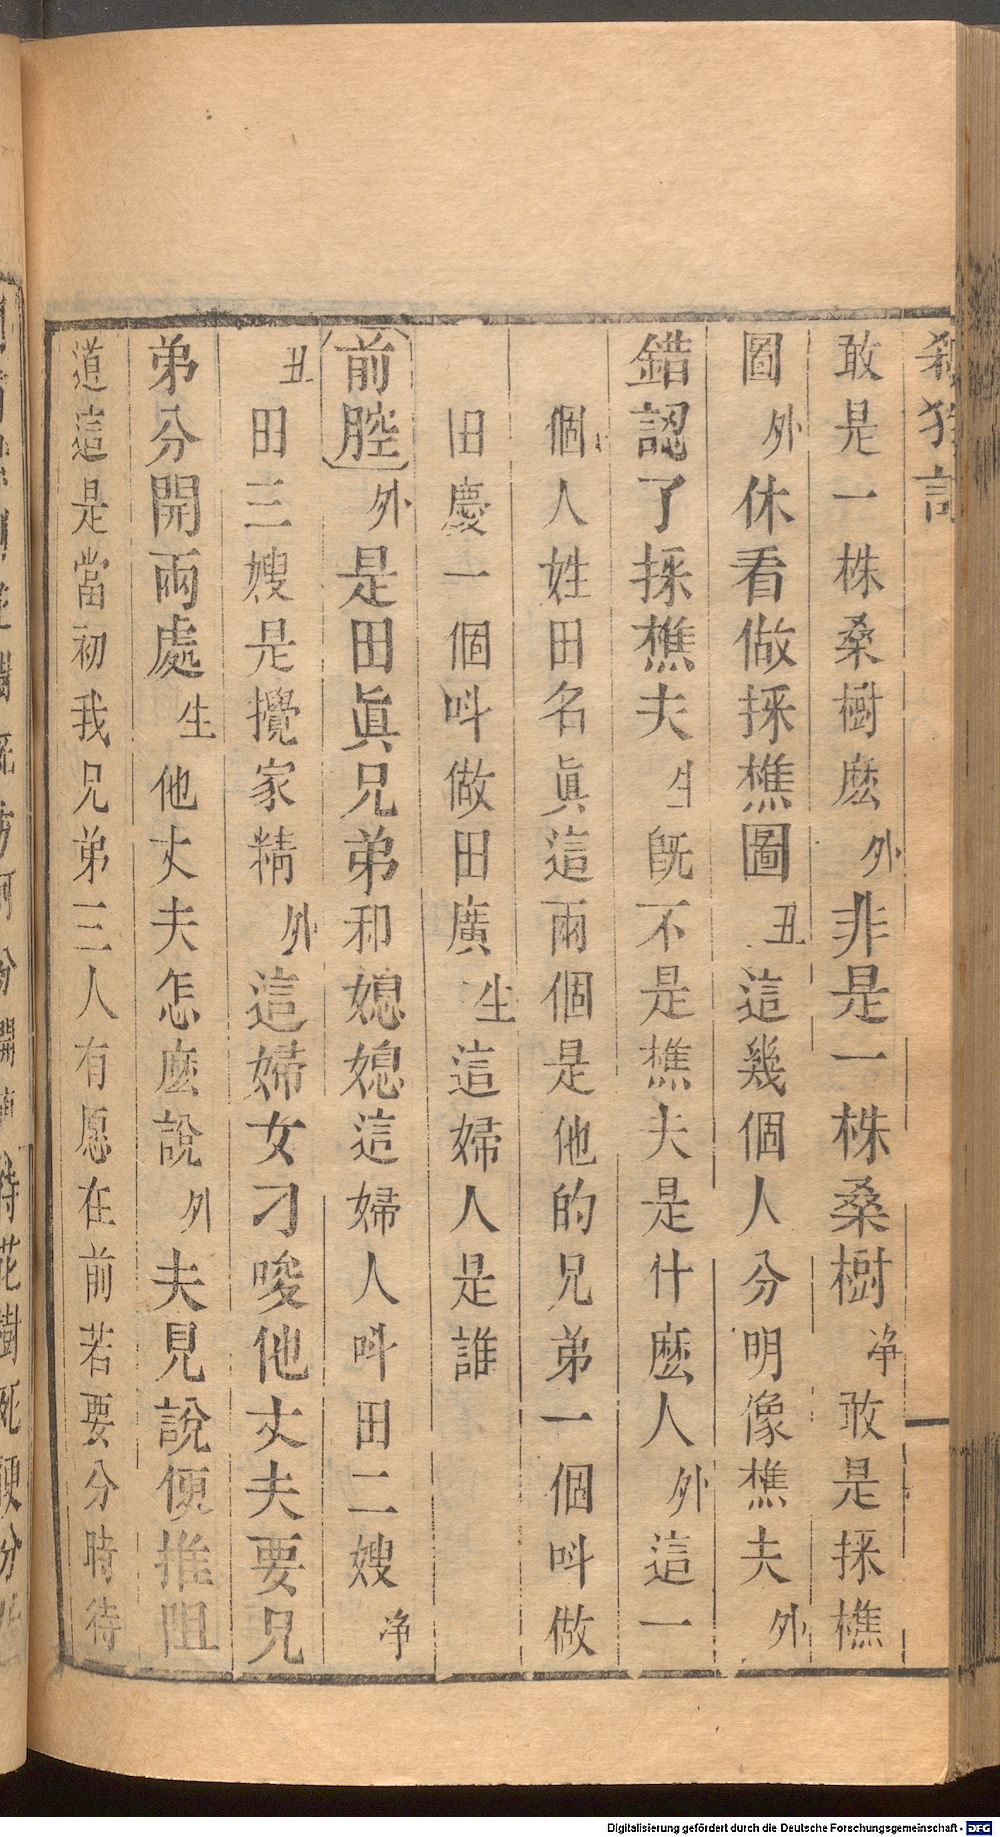 殺狗記
敢是一株桑樹麽外非是一株桑樹净敢是採樵
圖外休看做採樵圖丑這幾個人分明像樵夫外
錯認了採樵夫生旣不是樵夫是什麽人外這一
個人姓田名眞這兩個是他的兄弟一個呌做
旧慶一個呌做田廣生這婦人是誰
前腔外是田眞兄弟和媳媳這婦人呌田二嫂净
丑田三嫂是攪家精外這婦女刁唆他丈夫要兄
弟分開兩處生他丈夫怎麽說外夫見說便推阻
道這是當初我兄弟三人有愿在前若要分時待
待花樹死便分
Digitalisierung gefördert durch die Deutsche Forschungsgemeinschaft - DFG